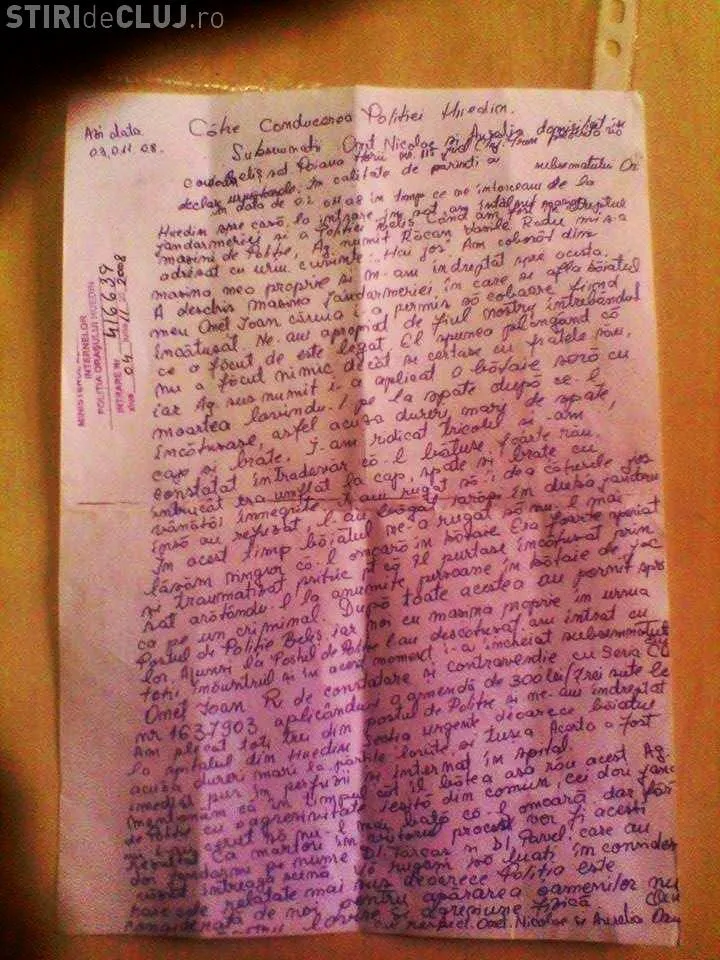 STIRIdeCLUJ.ro
Azi data
03.011.08.
Către Conducerea Poliției Huedin.
Subsemnații Oneț Nicolae și Aurelia domiciliați în
comuna Beliș sat Poiana Horii nr. 112 jud Cluj. Prin prezenta
declar următoarele. În calitate de părinți ai subsemnatului
În data de 02 011 08 în timp ce ne întorceam de la
Huedin spre casă la intrare în sat am întâlnit mașina
jandarmeriei și a Poliției Beliș Când am fost în dreptul
mașinii de Poliție, Ag. numit Răcar Vasile Radu mi s-a
adresat cu urm. cuvinte: Hai jos. Am coborât din
mașina mea proprie și m-am îndreptat spre acesta.
A deschis mașina jandarmeriei în care se afla băiatul
meu Oneț Ioan căruia i-a permis să coboare fiind
încătușat. Ne-am apropiat de fiul nostru întrebându-l
ce a făcut de este legat. El spunea plângând că
nu a făcut nimic decât se certase cu fratele său,
iar Ag sus numit i-a aplicat o bătaie soră cu
moartea lovindu-l pe la spate după ce-l
încătușase, astfel acuza dureri mari de spate,
cap și brațe. I-am ridicat tricoul și am
constatat într-adevăr că-l bătuse foarte rău
întrucât era umflat la cap, spate și brațe cu
vânătăi înnegrite. I-am rugat să-i dea cătușele jos
însă au refuzat, l-au băgat iarăși în duba jandarm
În acest timp băiatul ne-a rugat să nu-l mai
lăsăm singur că-l omoară în bătaie Era foarte speriat
și traumatizat psihic pt că îl purtase încătușat prin
sat arătându-l la anumite persoane în bătaie de joc
ca pe un criminal. După toate acestea au pornit spre
Postul de Poliție Beliș, iar noi cu mașina proprie în urma
lor. Ajunși la Postul de Poliție l-au descătușat am intrat cu
toți înăuntrul și în acel moment i-a încheiat subsemnatului
Oneț Ioan R. de constatare și contravenție cu Seria CC
nr 1637903 aplicându-i o amendă de 300 lei/trei sute lei
Am plecat toți trei din postul de Poliție și ne-am îndreptat
la spitalul din Huedin Secția urgențe deoarece băiatul
acuza dureri mari la părțile lovite și tusea Acesta a fost
imediat pus în perfuzii și internat în spital.
Menționăm că în timpul cât îl bătea așa rău acest Ag.
de Poliție cu o agresivitate ieșită din comun, cei doi jand
mi i-au cerut să nu-l mai bată că-l omoară dar fără
rezultat Ca martori în viitorul proces vor fi acești
doi jandarmi pe nume Dl. Tarcas și Dl. Pavel care au
văzut întreaga scenă. Vă rugăm să luați în considerare
cele relatate mai sus deoarece Poliția este
considerată de noi pentru apărarea oamenilor nu
lovire și agresiune fizică.
cu respect. Oneț Nicolae și Aurelia
MINISTERUL
INTERNELOR
POLIȚIA ORAȘULUI HUEDIN
INTRARE Nr. 416639
ziua 04 luna 11 2008